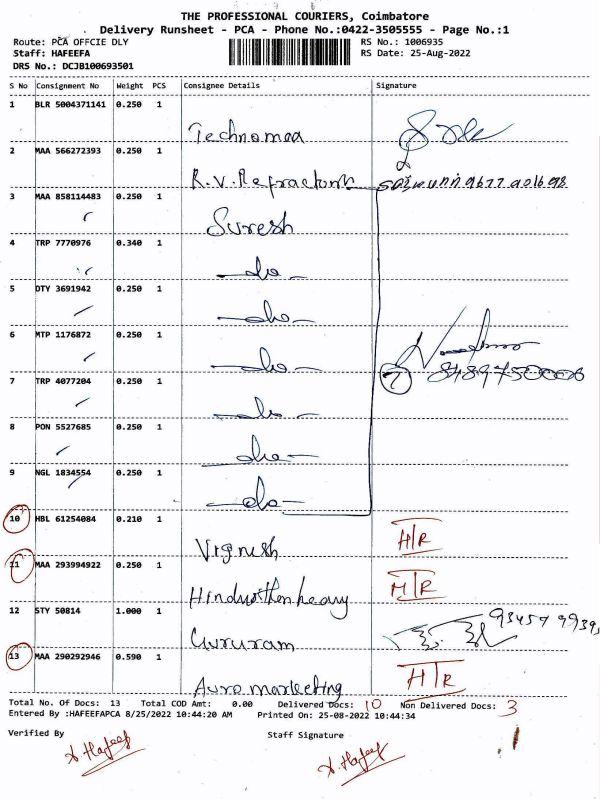 THE PROFESSIONAL COURIERS, Coimbatore
Delivery Runsheet - PCA - Phone No.:0422-3505555 - Page No.:1
Route: PCA OFFCIE DLY RS No.: 1006935
Staff: HAFEEFA RS Date: 25-Aug-2022
DRS No.: DCJB100693501
S No Consignment No Weight PCS Consignee Details Signature
1 BLR 5004371141 0.250 1
Technomaa
2 MAA 566272393 0.250 1
R.V. Refractory
3 MAA 858114483 0.250 1
Suresh
4 TRP 7770976 0.340 1
—do—
5 DTY 3691942 0.250 1
—do—
6 MTP 1176872 0.250 1
—do—
7 TRP 4077204 0.250 1
7 8489750006
—do—
8 PON 5527685 0.250 1
—do—
9 NGL 1834554 0.250 1
—do—
10 HBL 61254084 0.210 1
Vignesh H/R
11 MAA 293994922 0.250 1
Hindusthan heavy H/R
12 STY 50814 1.000 1
Gururam
13 MAA 290292946 0.590 1
Auro marketing H/R
Total No. Of Docs: 13 Total COD Amt: 0.00 Delivered Docs: 10 Non Delivered Docs: 3
Entered By :HAFEEFAPCA 8/25/2022 10:44:20 AM Printed On: 25-08-2022 10:44:34
Verified By Staff Signature
S. Hafeef S. Hafeef